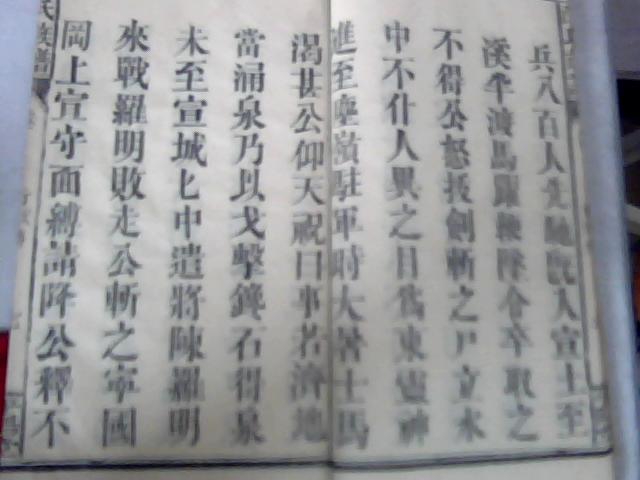 兵八百人先驰既入宣上至
溪半渡馬躍鞭墜令卒取之
不得公怒拔劍斬之尸立水
中不仆人異之目為東靈神
進至麈嶺駐軍時大暑士馬
渴甚公仰天祝曰事若濟地
當涌泉乃以戈擊鏬石得泉
未至宣城匕中遣將陳羅明
來戰羅明敗走公斬之寧國
岡上宣守面縛請降公釋不
氏族譜